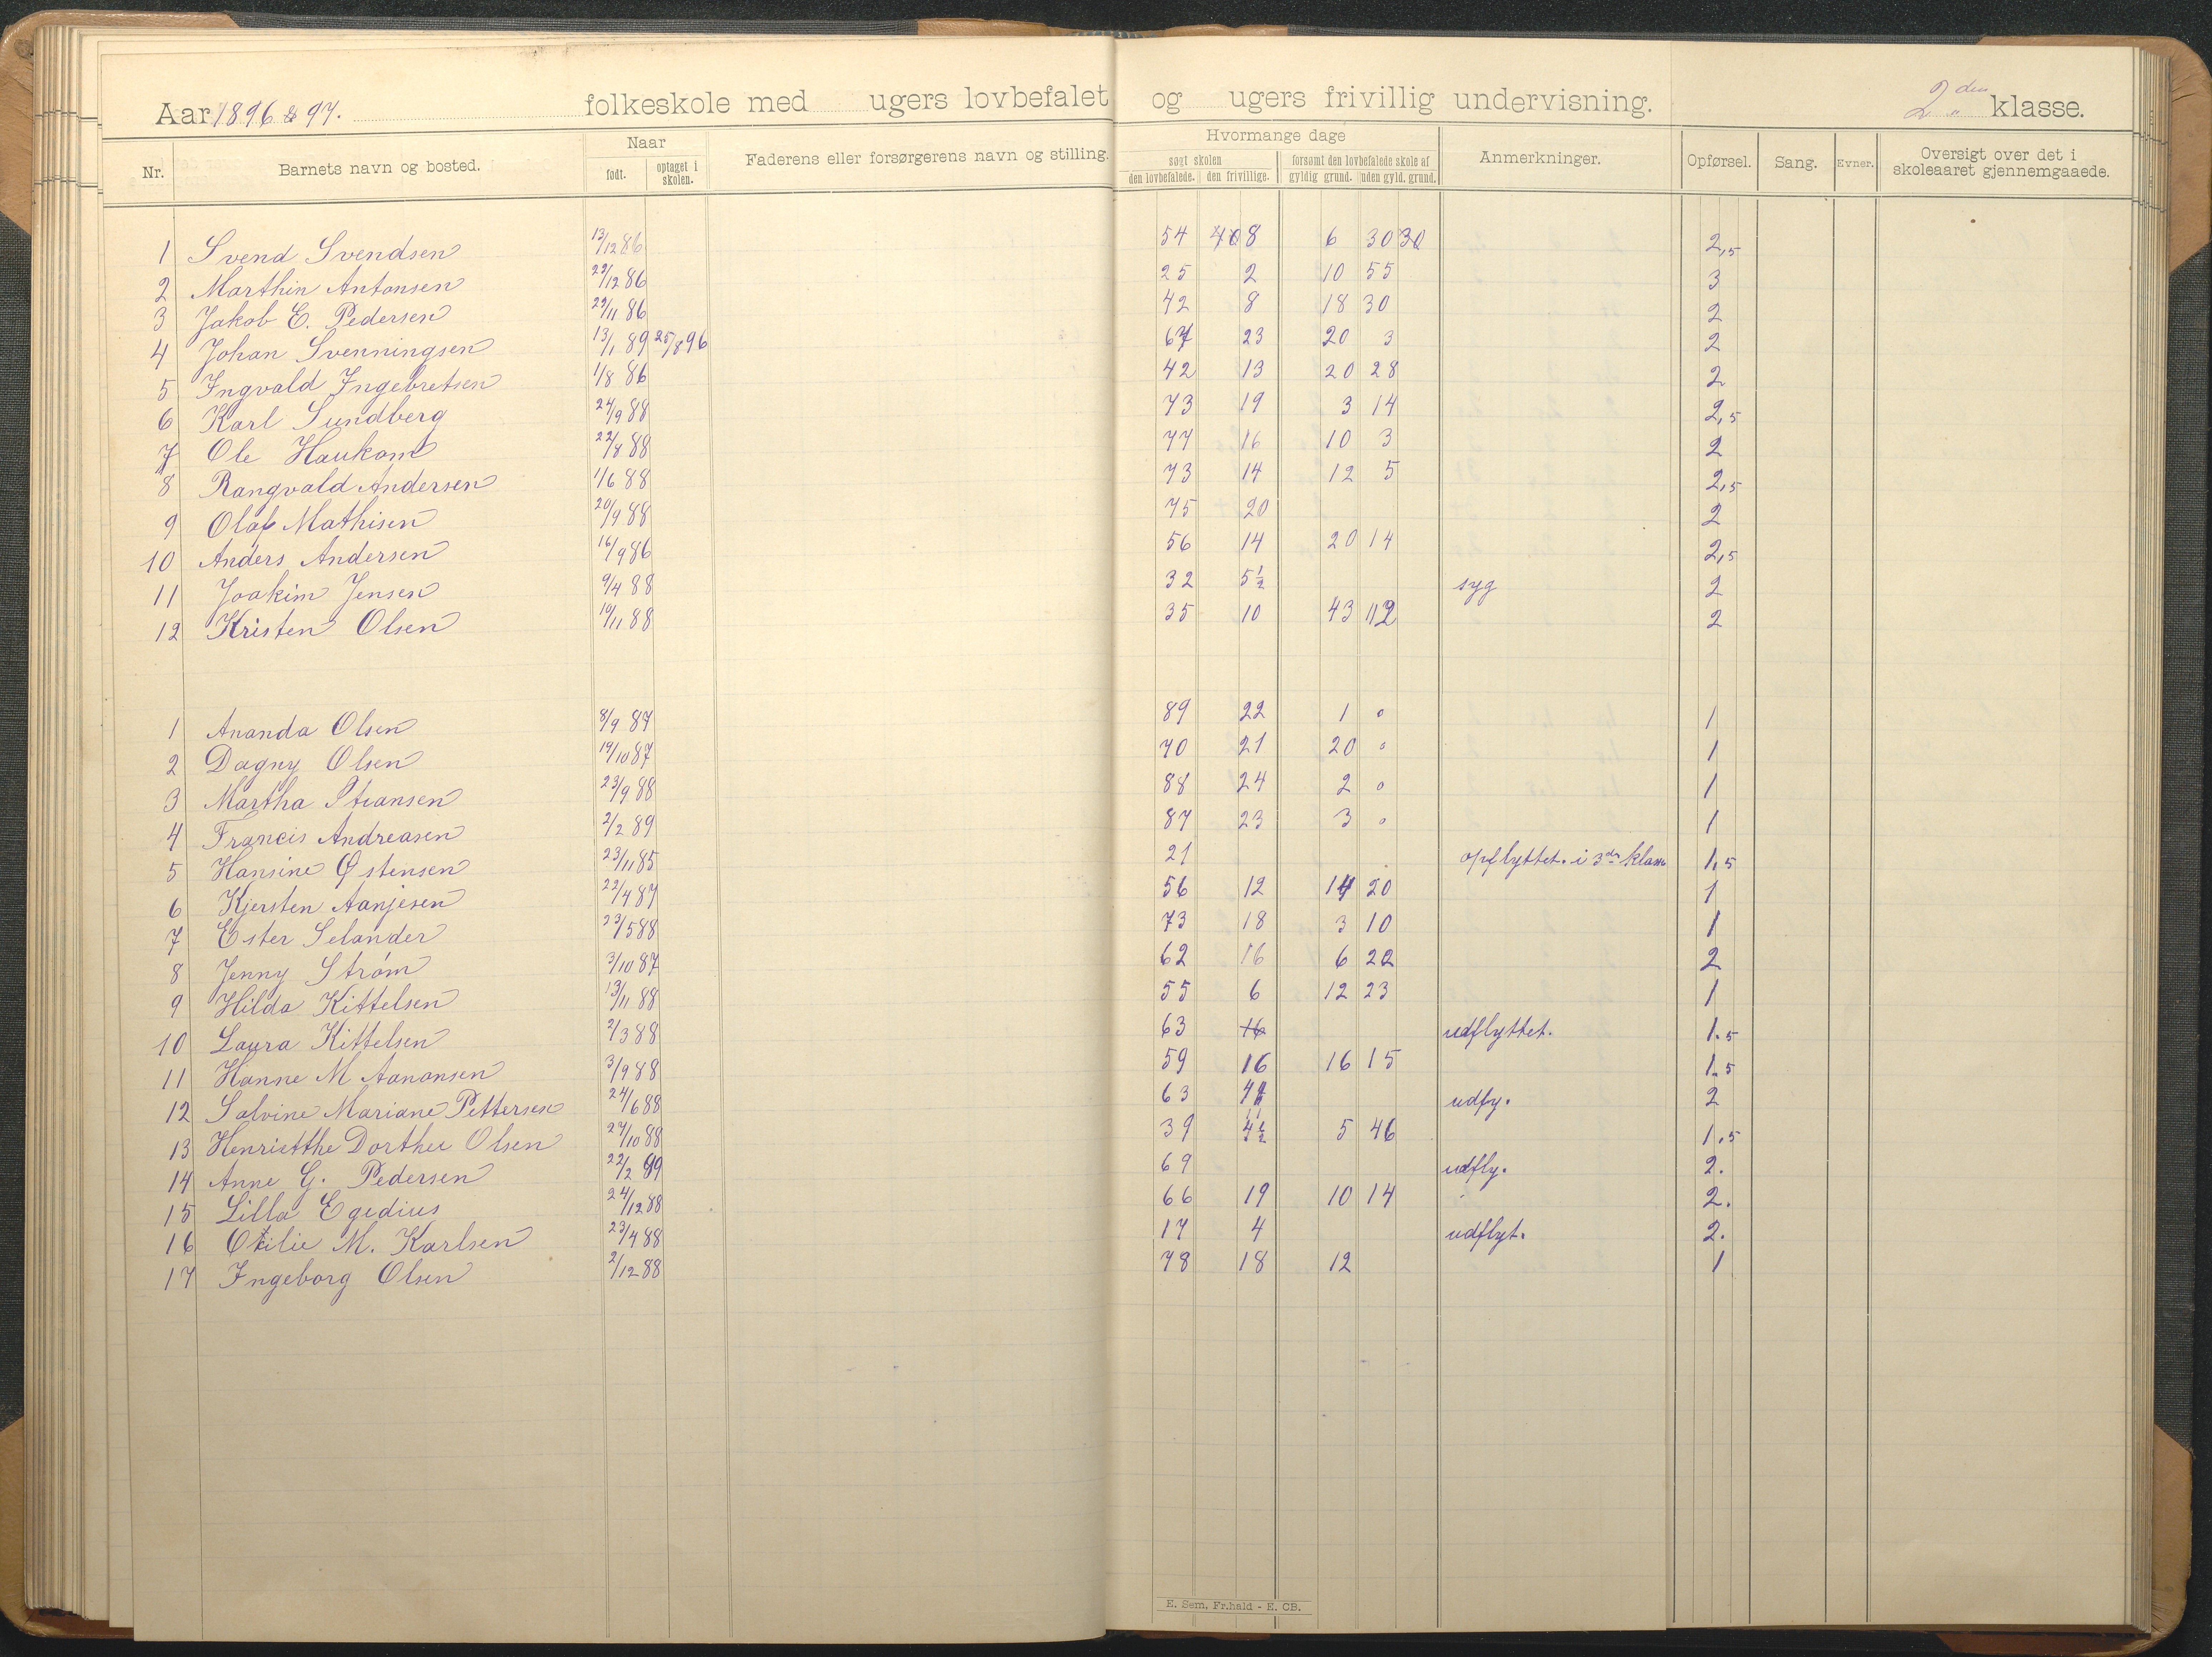 Aar 1896 & 97. folkeskole med ugers lovbefalet og ugers frivillig undervisning. 2den klasse.
Nr. Barnets navn og bosted. Naar født. optaget i skolen. Faderens eller forsørgerens navn og stilling. Hvormange dage søgt skolen den lovbefalede. den frivillige. forsømt den lovbefalede skole af gyldig grund. uden gyld. grund. Anmerkninger. Opførsel. Sang. Evner. Oversigt over det i skoleaaret gjennemgaaede.
1 Svend Svendsen 13/12 86 54 8 6 30 30 2,5
2 Marthin Antonsen 29/12 86 25 2 10 55 3
3 Jakob E. Pedersen 29/11 86 42 8 18 30 2
4 Johan Svenningsen 13/1 89 25/8 96 67 23 20 3 2
5 Ingvald Ingebretsen 1/8 86 42 13 20 28 2
6 Karl Sundberg 24/9 88 73 19 3 14 2,5
7 Ole Haukom 22/8 88 77 16 10 3 2
8 Rangvald Andersen 1/6 88 73 14 12 5 2,5
9 Olaf Mathisen 20/9 88 75 20 2
10 Anders Andersen 16/9 86 56 14 20 14 2,5
11 Joakim Jensen 9/4 88 32 5½ syg 2
12 Kristen Olsen 10/11 88 35 10 43 12 2
1 Ananda Olsen 8/9 87 89 22 1 0 1
2 Dagny Olsen 19/10 87 70 21 20 0 1
3 Martha Stiansen 23/9 88 88 24 2 0 1
4 Francis Andreasen 2/2 89 87 23 3 0 1
5 Hansine Østensen 23/11 85 21 opflyttet i 3die klasse 1,5
6 Kjersten Aanjesen 22/4 87 56 12 14 20 1
7 Ester Selander 23/5 88 73 18 3 10 1
8 Jenny Strøm 3/10 87 62 16 6 22 2
9 Hilda Kittelsen 13/11 88 55 6 12 23 1
10 Laura Kittelsen 2/3 88 63 16 udflyttet. 1.5
11 Hanne M Aanonsen 3/9 88 59 16 16 15 1.5
12 Salvine Mariane Pettersen 24/6 88 63 udfy. 2
13 Henrietthe Dorthee Olsen 27/10 88 39 4½ 5 46 1,5
14 Anne G. Pedersen 22/2 89 69 udfly. 2.
15 Lilla Egedius 24/12 88 66 19 10 14 2.
16 Otilie M. Karlsen 23/4 88 17 4 udflyt. 2.
17 Ingeborg Olsen 2/12 88 78 18 12 1
E. Sem, Fr.hald - E. CB.